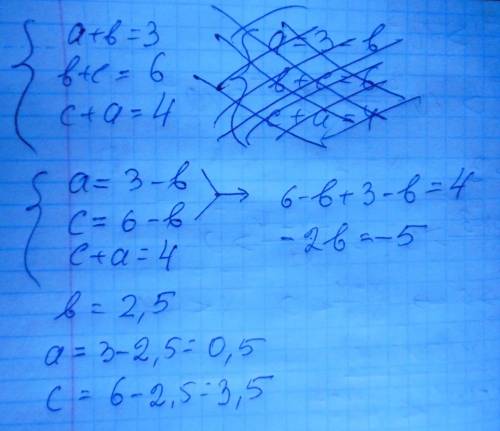 a+b=3
b+c=6
c+a=4
a=3-b
b+c=6
c+a=4
a=3-b
c=6-b
c+a=4
6-b+3-b=4
-2b=-5
b=2,5
a=3-2,5=0,5
c=6-2,5=3,5